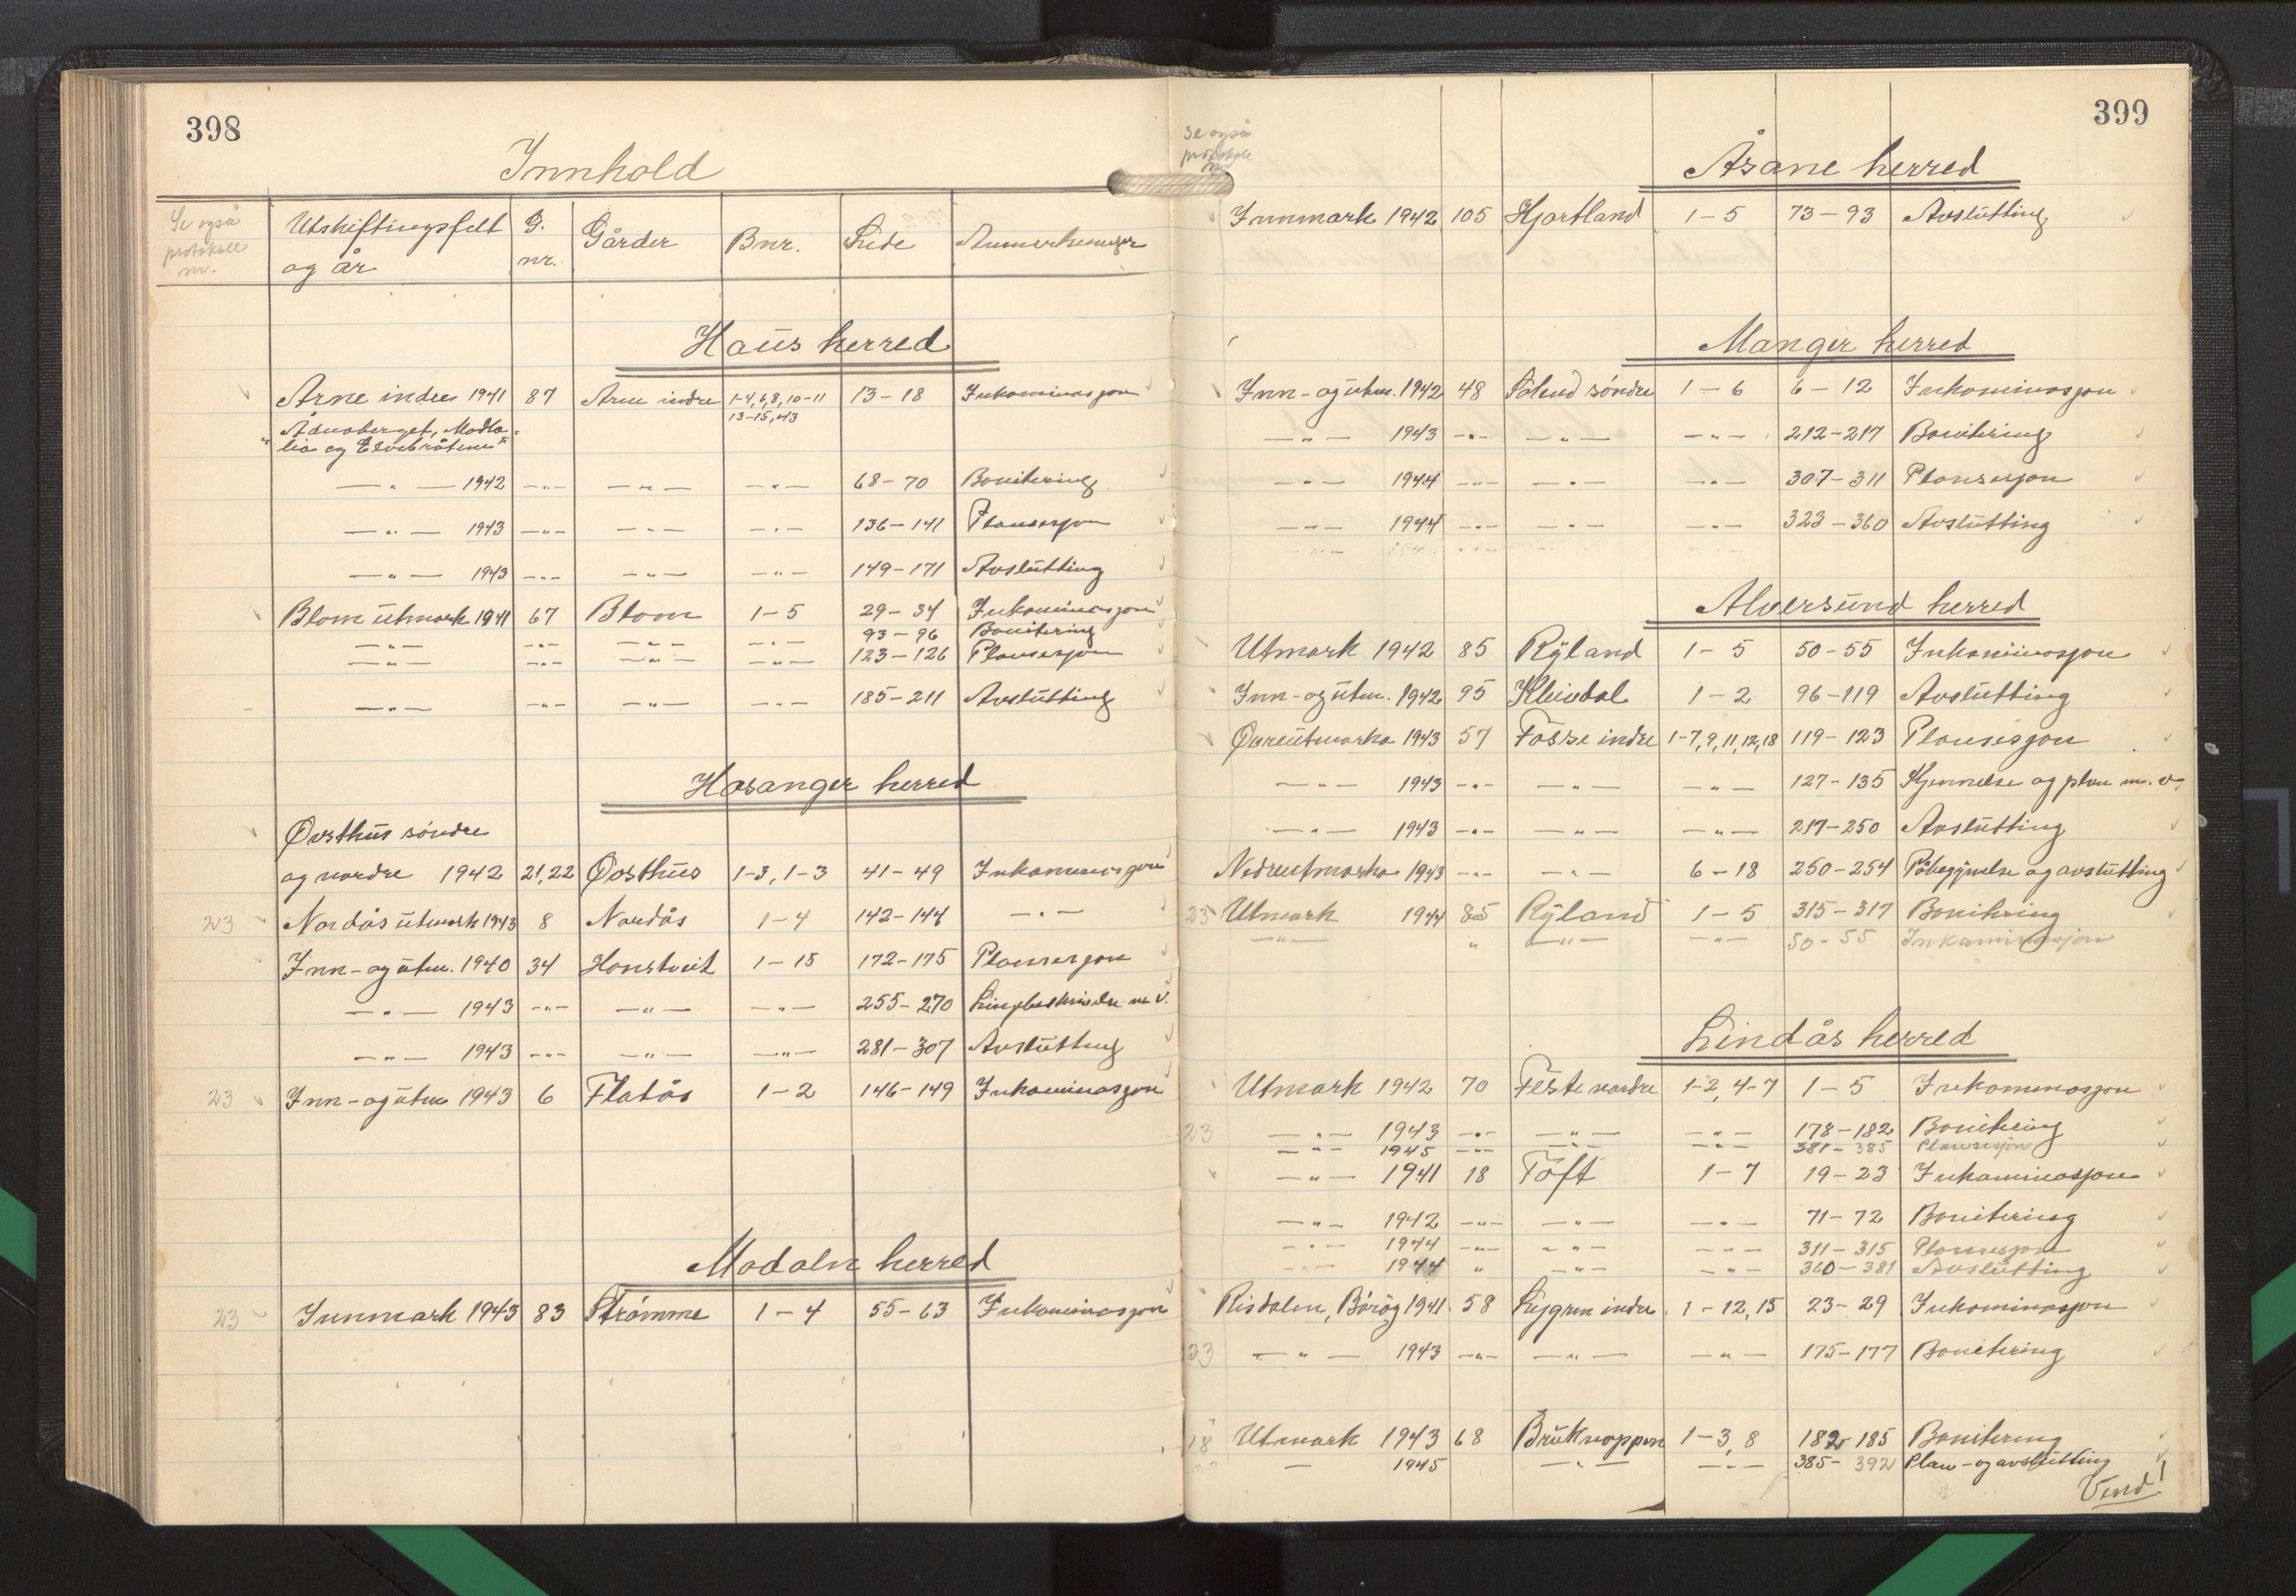 398
Innhold
Se også protokoll nr. Utskiftingsfelt og år G. nr. Gårder Bnr. Side Anmerkninger
Haus herred
Arne indre 1941 87 Arne indre 1-4,6,8,10-11 13-18 Inkaminasjon
13-15, 43
Ådnaberget, Modla-
lia og Elvebråtene"
—"— 1942 -"- —"— —"— 68-70 Bonitering
—"— 1943 -"- —"— —"— 136-141 Plansesjon
—"— 1943 -"- —"— —"— 149-171 Avslutting
Blom utmark 1941 67 Blom 1-5 29-34 Inkaminasjon
—"— -"- —"— —"— 93-96 Bonitering
—"— -"- —"— —"— 123-126 Plansesjon
—"— -"- —"— —"— 185-211 Avslutting
Hosanger herred
Øvsthus søndre
og nordre 1942 21,22 Øvsthus 1-3, 1-3 41-49 Inkaminasjon
23 Nordås utmark 1943 8 Nordås 1-4 142-144 —"—
Inn- og utm. 1940 34 Honstveit 1-15 172-175 Plansesjon
—"— 1943 -"- —"— —"— 255-270 Linjebeskrivelse m.v.
—"— 1943 -"- —"— —"— 281-307 Avslutting
23 Inn- og utm 1943 6 Flatås 1-2 146-149 Inkaminasjon
Modalen herred
23 Innmark 1943 83 Strømme 1-4 55-63 Inkaminasjon
399
Se også
protokoll
nr
Åsane herred
Innmark 1942 105 Hjortland 1-5 73-93 Avslutting
Manger herred
Inn- og utm. 1942 48 søndre 1-6 6-12 Inkaminasjon
—"— 1943 -"- —"— —"— 212-217 Bonitering
—"— 1944 -"- —"— —"— 307-311 Plansesjon
—"— 1944 -"- —"— —"— 323-360 Avslutting
Alversund herred
Utmark 1942 85 Ryland 1-5 50-55 Inkaminasjon
Inn- og utm. 1942 95 Kleivdal 1-2 96-119 Avslutting
Øvreutmarka 1943 57 Fosse indre 1-7,9,11,12,18 119-123 Plansesjon
—"— 1943 -"- —"— —"— 127-135 Kjennelse og plan m.v.
—"— 1943 -"- —"— —"— 217-250 Avslutting
Nedreutmarka 1943 -"- —"— 6-18 250-254 Påbegynnelse og avslutting
23 Utmark 1944 85 Ryland 1-5 315-317 Bonitering
—"— " —"— —"— 50-55 Inkaminasjon
Lindås herred
Utmark 1942 70 Feste nordre 1-2, 4-7 1-5 Inkaminasjon
23 —"— 1943 -"- —"— —"— 178-182 Bonitering
—"— 1945 -"- —"— —"— 381-385 Plansesjon
—"— 1941 18 Toft 1-7 19-23 Inkaminasjon
—"— 1942 -"- —"— —"— 71-72 Bonitering
—"— 1944 -"- —"— —"— 311-315 Plansesjon
—"— 1944 " —"— —"— 360-381 Avslutting
Risdalen, Børøg 1941 58 Lygren indre 1-12, 15 23-29 Inkaminasjon
23 —"— 1943 -"- —"— —"— 175-177 Bonitering
18 Utmark 1943 68 Bruknappen 1-3, 8 182-185 Bonitering
— 1945 —"— —"— 385-392 Plan- og avslutting
Vend!